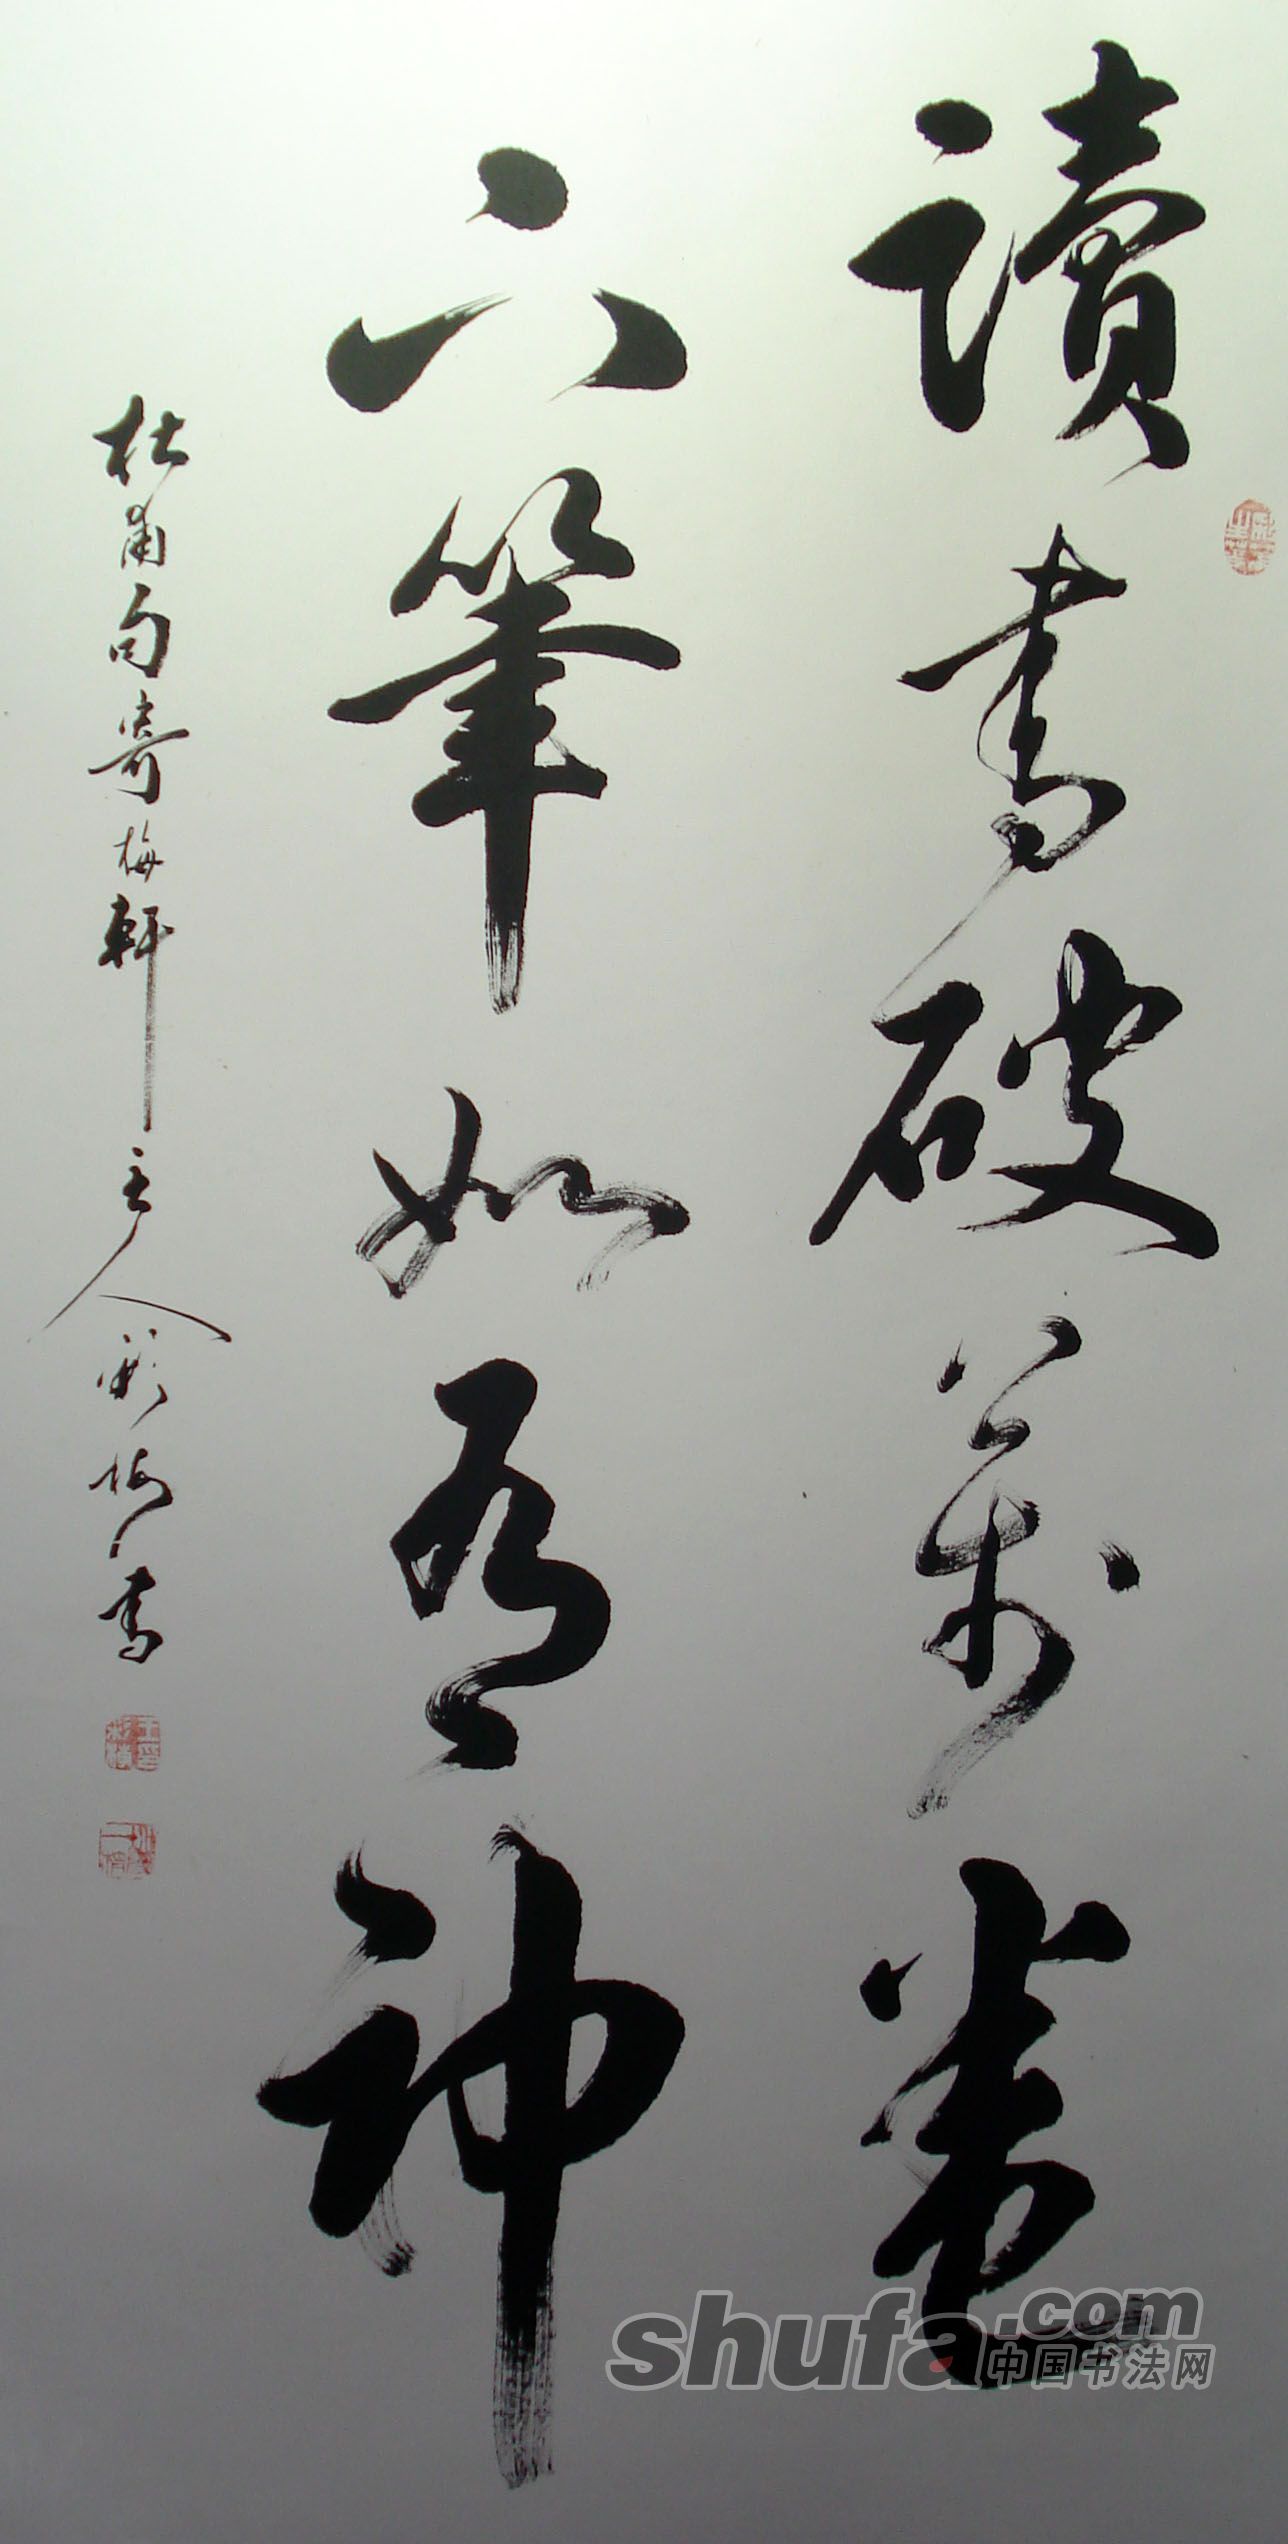 讀書破萬卷
下筆如有神
杜甫句寄梅軒主人彩梅書
shufa.com
中国书法网